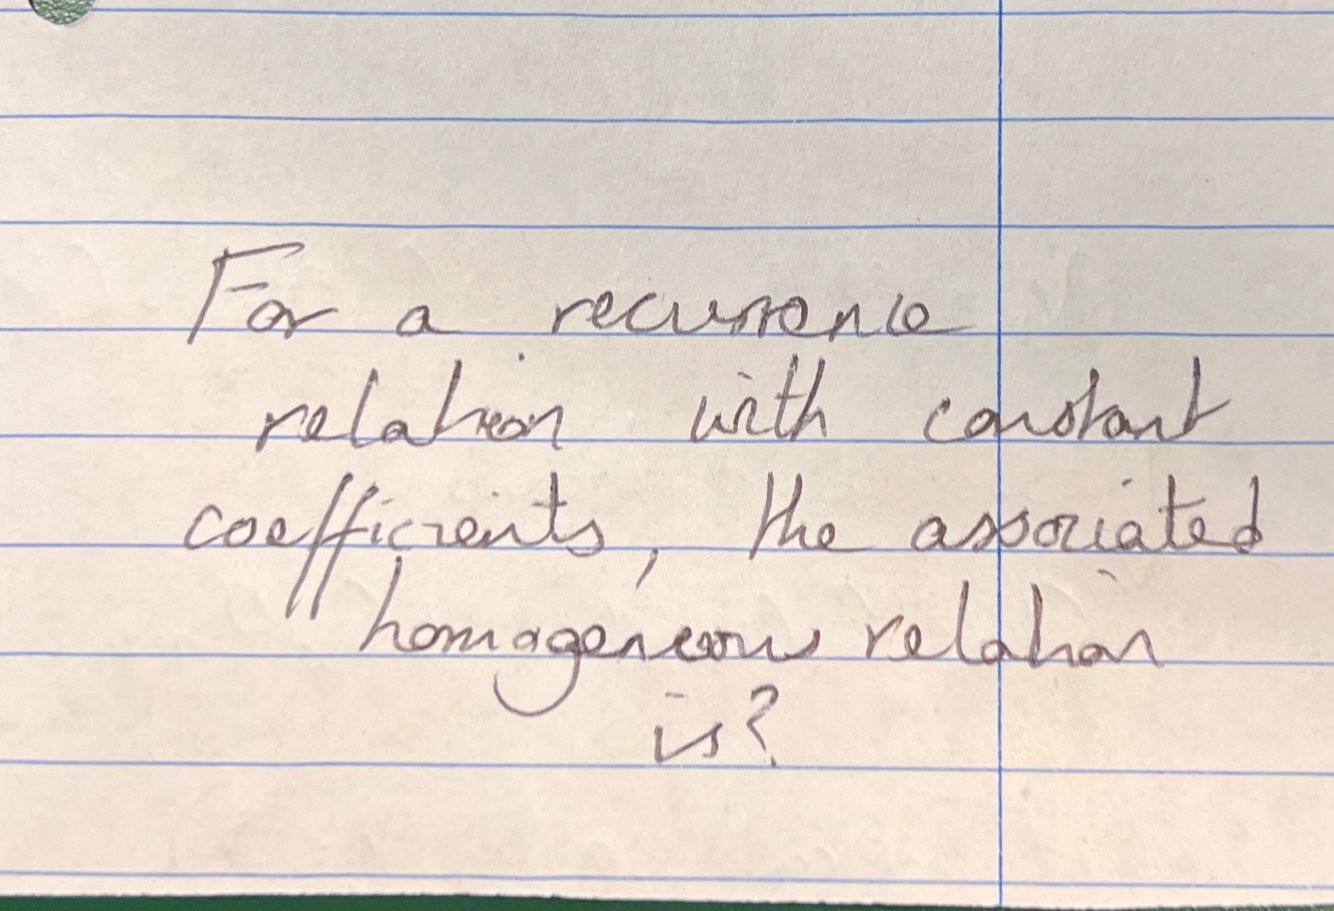 For a recurrence
relation with constant
coefficients, the associated
homogeneous relation
is?